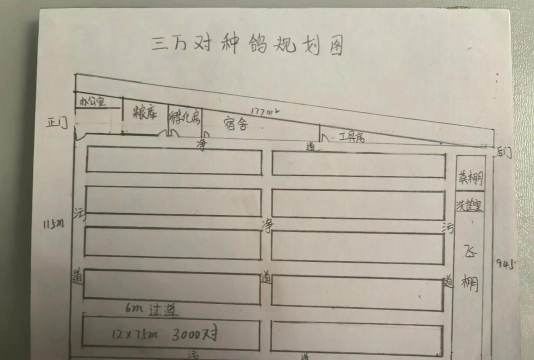 三万对种鸽规划图
办公室
粮库
孵化房
宿舍
177m²
工具房
正门
后门
净
道
粪棚
洗盆室
污
净
污
115m
飞
棚
945
道
道
道
6m 过道
12×75m 3000对
污
道